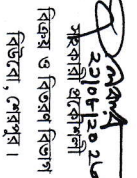 ২১/০৫/২০২৬
সহকারী প্রকৌশলী
বিক্রয় ও বিতরণ বিভাগ
বিউবো, শেরপুর।